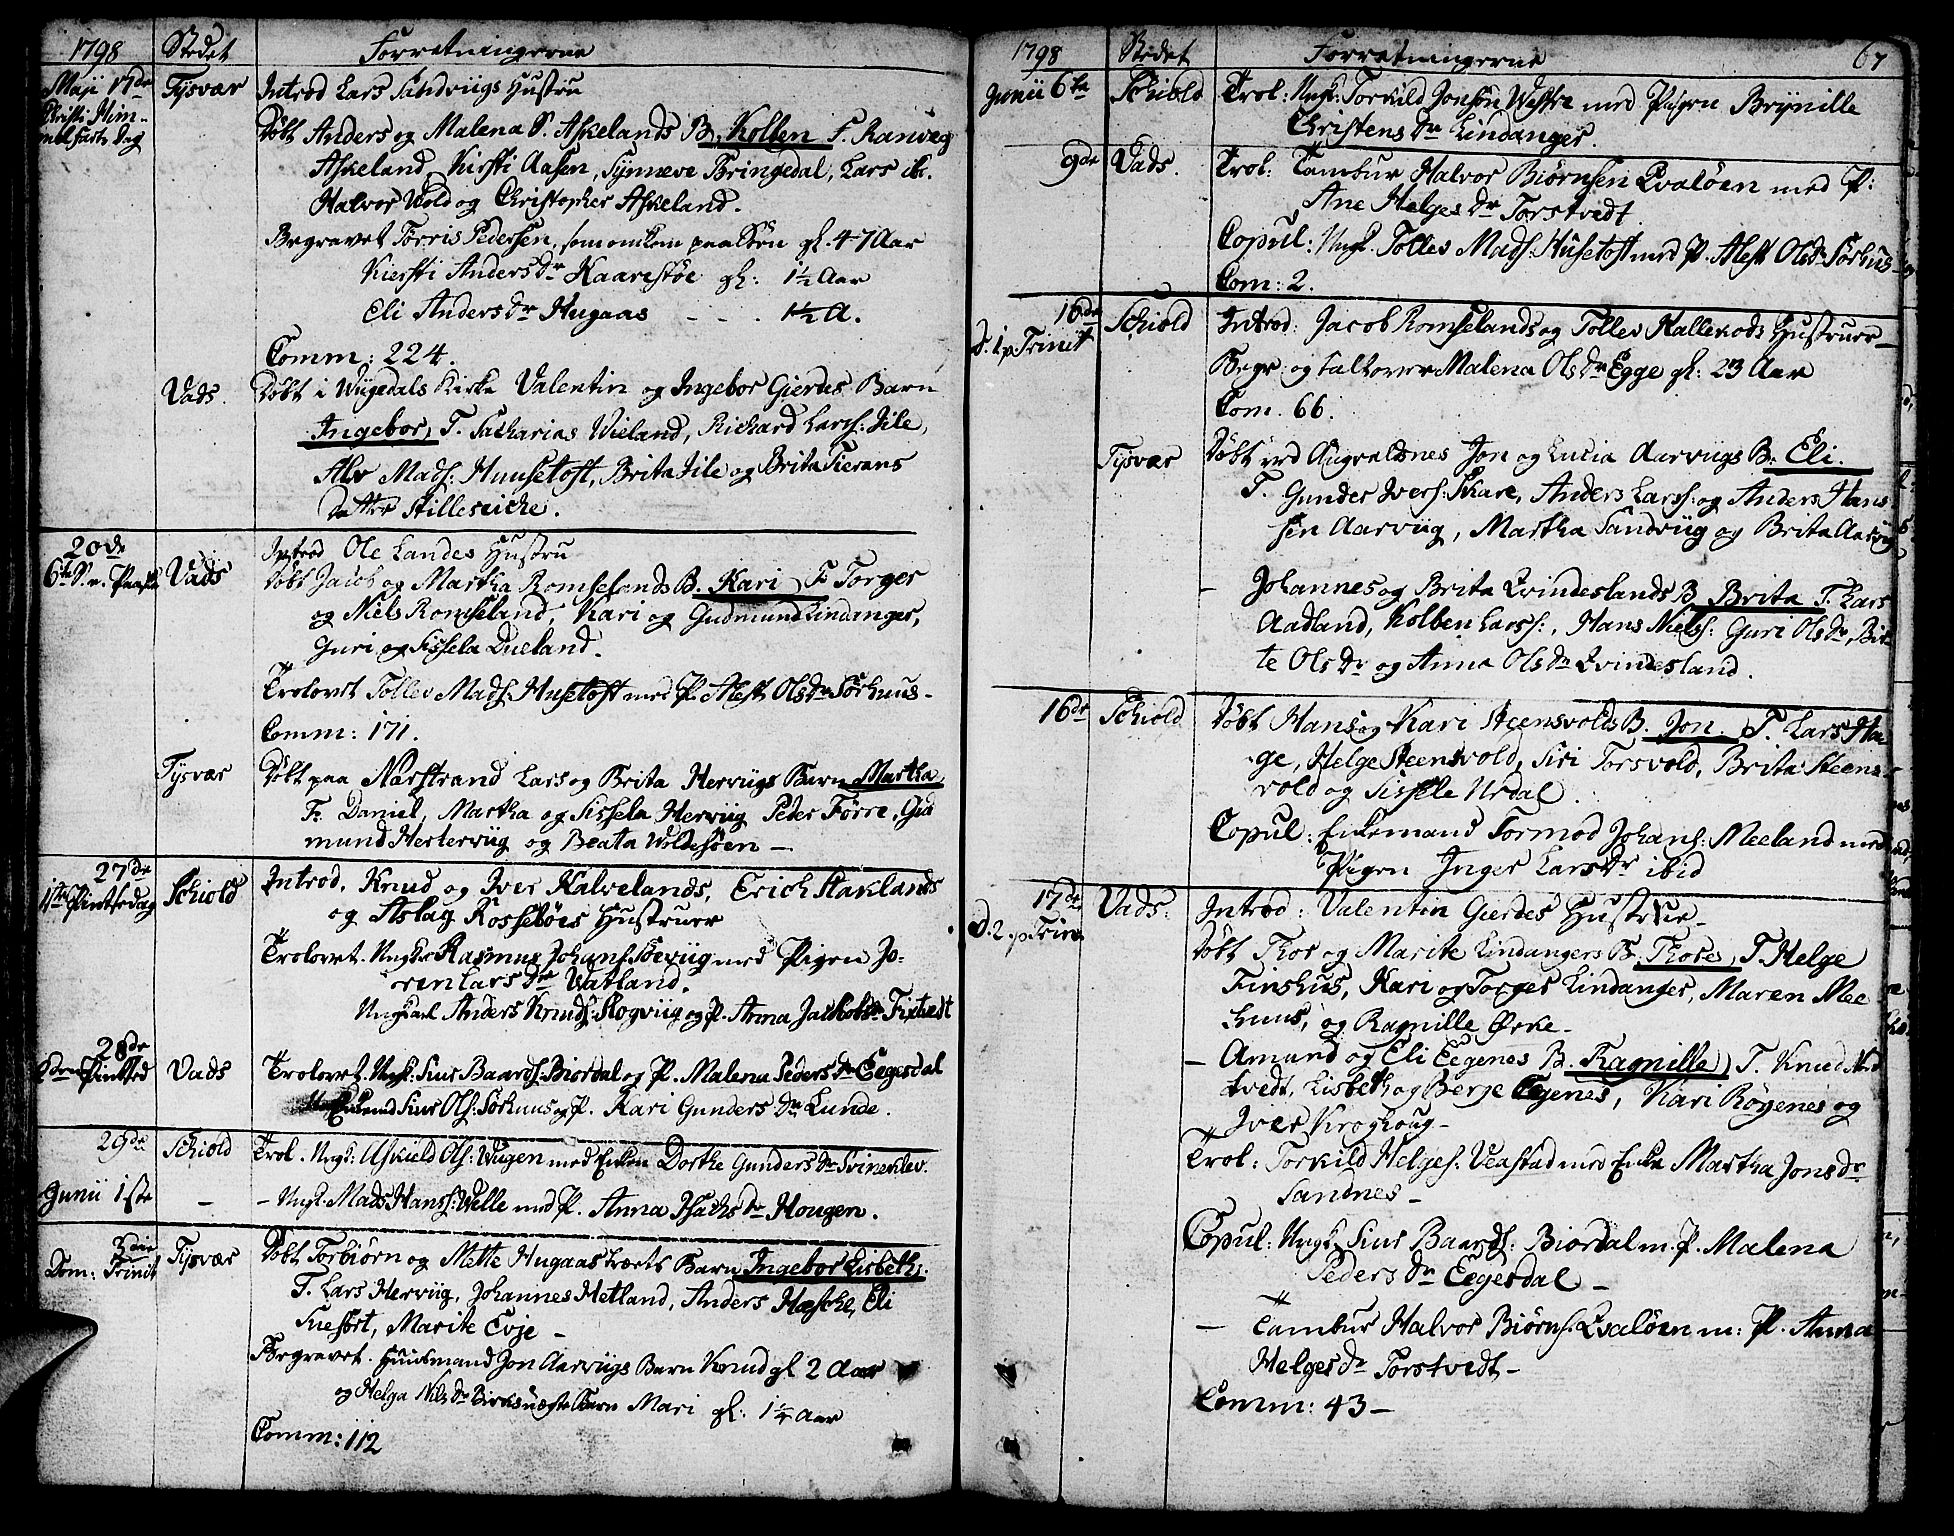 1798 Stedet Forretningerne
Maji 17de Tysvær Introd Lars Sandviigs Hustru
Christi Him-
melfarts Dag
Døbt Anders og Malena S. Askelands B. Kolben F. Ranveg
Askeland, Kirsti Aasen, Synneve Bringedal, Lars ib.
Halvor Wold og Christopher Askeland.
Begravet Torris Pedersen, som omkom paa Søn gl. 47 Aar
Kiersti Anders Dr Kaarestøe gl: 1½ Aar
Eli Anders Dr Hugaas - - . 1½ A.
Comm: 224.
Vads. Døbt i Wiigedals Kirke Valentin og Ingebor Gierdes Barn
Ingebor, T. Sacharias Wieland, Richard Larss: Iile,
Alv Mads: Huusetoft, Brita Iile og Brita
Datter Stillesiche.
20de
6te S. e. Paaske Vads Introd Ole Landes Hustru
Døbt Jacob og Martha Romselands B. Kari F. Torger
og Niels Romseland, Kari og Gudmund Lindanger,
Guri og Sissela Dueland.
Trolovet Tollev Mads: Husetoft med P. Alest Ols Dr Sørhuus-
Comm: 171.
Tysvær Døbt paa Narstrand Lars og Brita Herviigs Barn Martha
F. Daniel, Martha og Sissela Herviig Peter Førre, Gud
mund Hertervig og Beata Woldesøen -
27de
1ste Pintsedag Schiold Introd. Knud og Iver Kalvelands, Erich Staklands
og Aslag Rossebøes Hustruer
Trolovet. Ungkr Rasmus Johans: med Pigen Jo-
ren Lars Dtr Vatland.
Ungkarl Anders Knuds: Skogviig og P. Anna Jachobs Dr Fixtvedt
28de
2den Pintsed Vads Trolovet. Ungk: Siur Baards: Biordal og P. Malena Peders Dr Eegesdal
Enkemd Siur Ols: Sørhuus og P. Kari Gunders Dr Lunde.
29de Schiold Trol. Ungk: Askield Ols: Wiigen med Enken Dorthe Gunders Dr Svineklev.
Junii 1ste - - Ungk. Mads Hanss: Welle med P. Anna Isachs Dr Hougen.
3die
Dom: Trinit Tysvær Døbt Torbiørn og Mette Hugaas træets Barn Ingebor Lisbeth:
T. Lars Herviig, Johannes Hetland, Anders Hæsche, Eli
Susort, Marite Evje -
Begravet. Huusmand Jon Aarviigs Barn Knud gl 2 Aar
og Helga Nils Dr Birks uægte Barn Mari gl: 1¼ Aar
Comm: 112
1798 Stedet Forretningerne 67
Junii 6te Schiold Trol: Ungk: Torkild Jonsøn Westre med Pigen Brynille
Christens Dr Lindanger.
9de Vads. Trol: Tambur Halvor Biørnsen Qvaløen med P:
Ane Helges Dr Torstvedt
Copul: Ungk. Tollev Mads: Husetoft med P. Alest Ols Dr Sørhuus
Com: 2.
10de
D. 1 p Trinit Schiold Introd: Jacob Romselands og Tollev Kallekods Hustruer-
Begr: og talt over Malena Ols Dr Egge gl: 23 Aar
Com. 66.
Tysvær Døbt ved Augvaldsnes Jon og Lucia Aarviigs B. Eli.
T. Gunder Ivers: Skare, Anders Larss: og Anders Hans
sen Aarviig, Martha Sandviig og Brita Aarviig
- Johannes og Brita Qvindeslands B Brita T. Lars
Aadland, Kolben Larss:, Hans Niels: Guri Ols Dr, Bri
te Ols Dr og Anna Ols Dr Qvindesland.
16de Schiold Døbt Hans og Kari Steensvolds B. Jon. T. Lars Ha
ge, Helge Steensvold, Siri Torsvold, Brita Steens
vold og Sissele Urdal.
Copul: Enkemand Tormod Johans: Meeland med
Pigen Inger Lars Dr ibid
17de
D. 2. p Trin Vads: Introd: Valentin Gierdes Hustrue-
Døbt Thor og Marite Lindangers B. Thore, T. Helge
Finshus, Kari og Torger Lindanger, Maren Mee
huus, og Ragnille Ørke-
- Amund og Eli Eegenes B. Ragnille, T. Knud Ned
tvedt, Lisbeth og Berge Egenes, Kari Røyenes og
Iver Kroghoug-
Trol: Torkild Helges: Veastad med Enke Martha Jons Dr
Sandnes-
Copul: Ungk Siur Baards: Biordal m. P. Malena
Peders Dr Eegesdal -
- Tambur Halvor Biørns: Qvaløen m: P. Anna
Helges Dr Torstvedt-
Comm: 43-